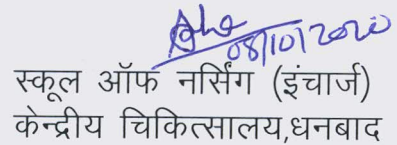 08/10/2020
स्कूल ऑफ नर्सिंग (इंचार्ज)
केन्द्रीय चिकित्सालय,धनबाद